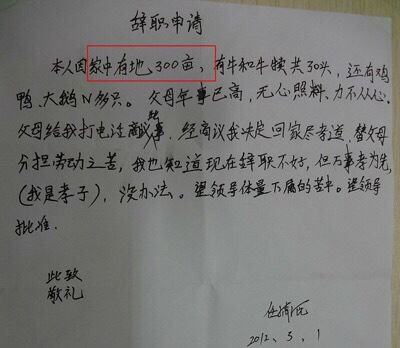 辞职申请
本人因家中有地300亩、有牛和牛犊共30头，还有鸡
鸭、大鹅N多只。父母年事已高，无心照料、力不从心。
父母给我打电话商议事，经商议我决定回家尽孝道，替父母
分担劳动之苦，我也知道现在辞职不好，但百事孝为先
(我是孝子)，没办法。望领导体量下属的苦中。望领导
批准.
此致
敬礼
2012、5、1